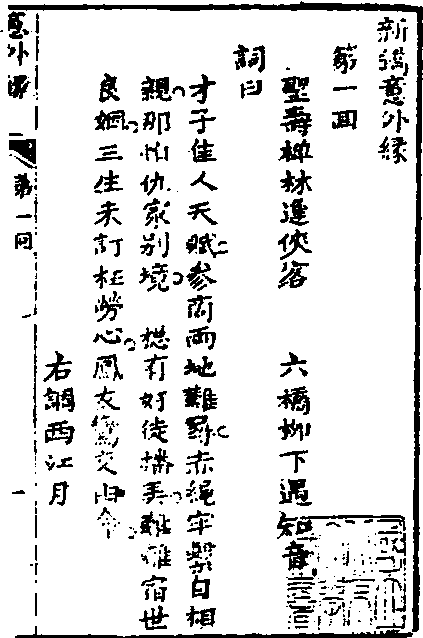 新鐫意外緣
第一回
聖壽禅林逢俠客　六橋柳下遇知音
詞曰
才子佳人天賦参商両地難羁赤绳牢繫自相
親那怕仇家别境　揔有奸徒播弄難離宿世
良姻三生未訂枉勞心鳳友鸞交由命
右調西江月
意外緣
第一回
一